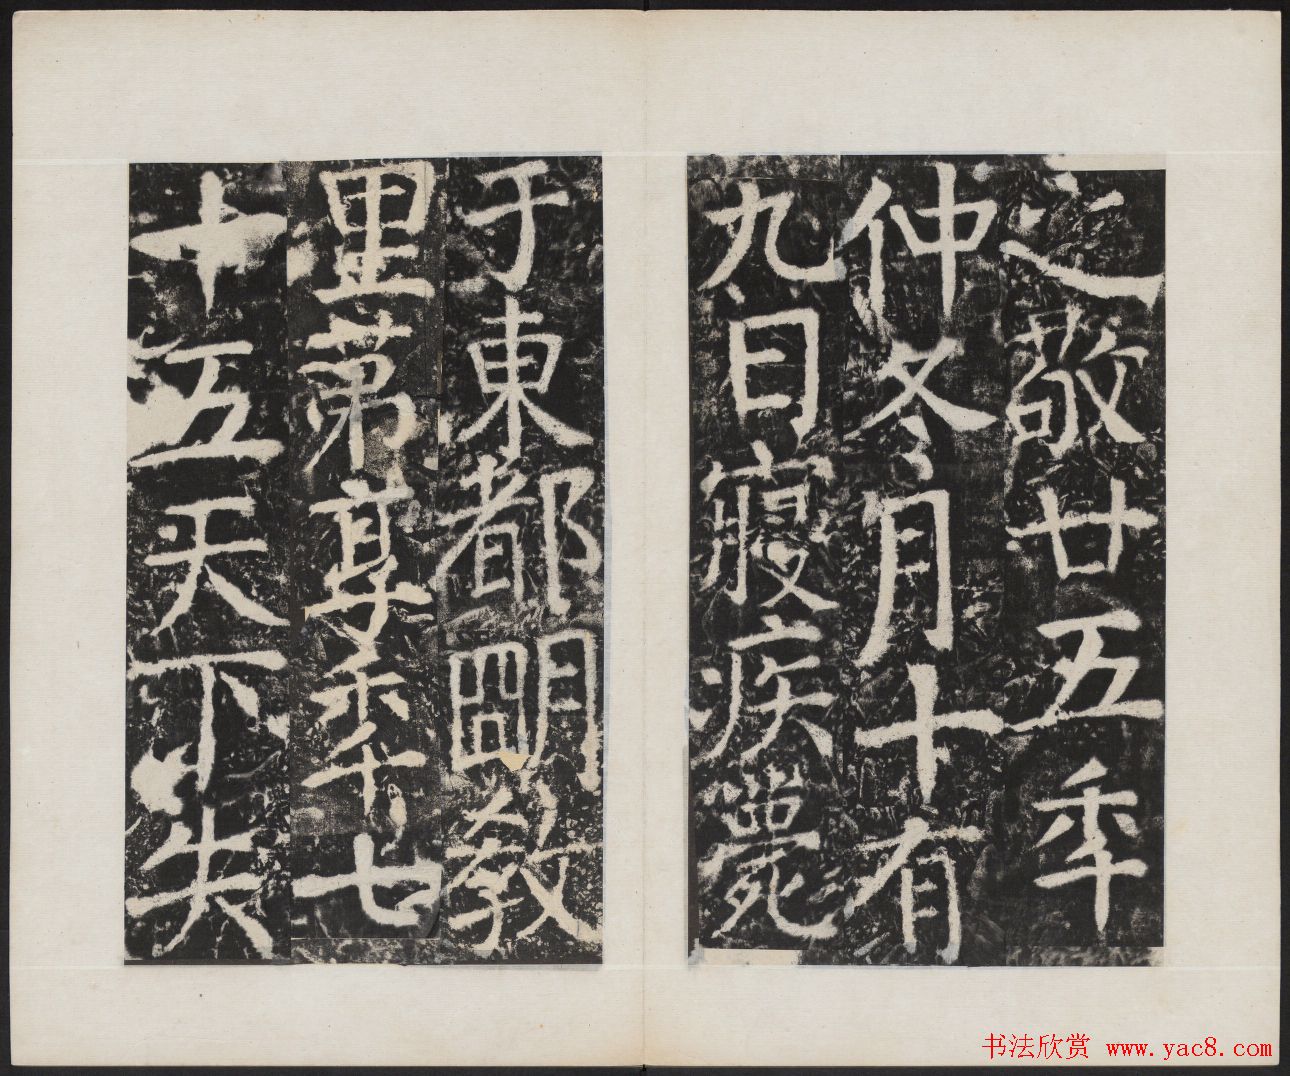 之敬廿五年
仲冬月十有
九日寢疾薨
于東都明教
里苐享年七
十五天下失
书法欣赏 www.yac8.com